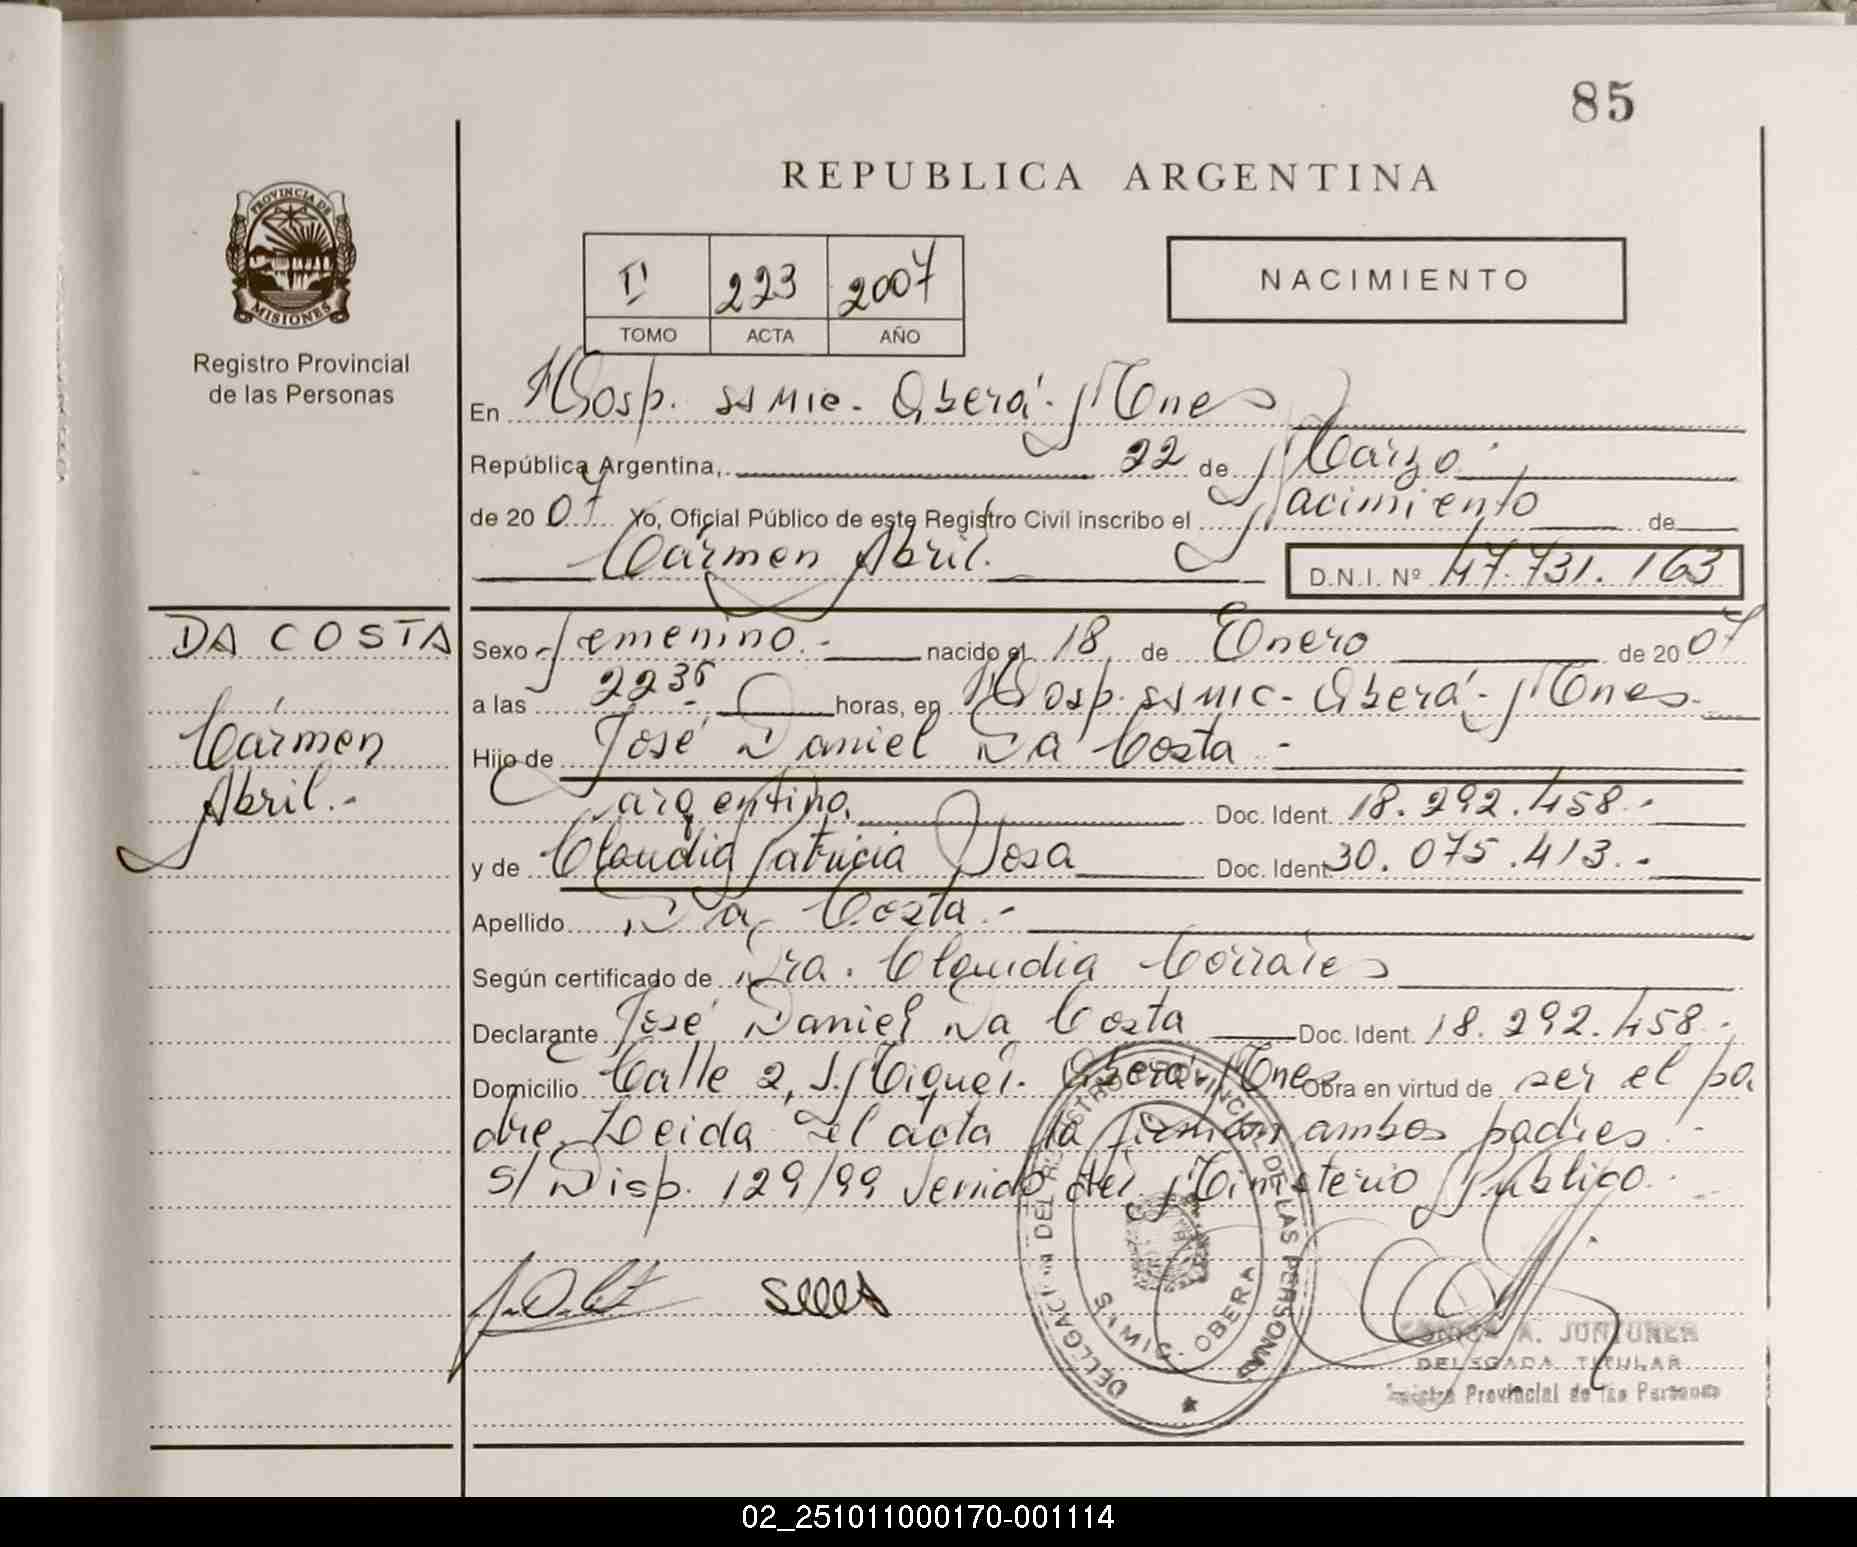 85
REPUBLICA ARGENTINA
PROVINCIA DE
MISIONES
Registro Provincial
de las Personas
223 2007
TOMO ACTA AÑO
NACIMIENTO
En Hosp. SSMIC- Oberá- Mnes
República Argentina, 22 de Marzo
de 2007 Yo, Oficial Público de este Registro Civil inscribo el Nacimiento de
Cármen Abril.
D.N.I. Nº 47.731.163
DA COSTA
Cármen
Abril.-
Sexo Femenino.- nacido el 18 de Enero de 2007
a las 2235 horas, en Hosp. SSMIC- Oberá- Mnes.
Hijo de José Daniel Da Costa -
argentino. Doc. Ident. 18.292.458.-
y de Claudia Patricia Doc. Ident 30.075.413.-
Apellido Da Costa.-
Según certificado de Dra. Claudia
Declarante José Daniel Da Costa Doc. Ident. 18.292.458.-
Domicilio Calle 2, S.Miguel. Oberá- Mnes Obra en virtud de ser el pa
dre. Leida el acta la firman ambos padres.-
s/Disp. 129/99 del Ministerio Publico.-
DELEGACION DEL REGISTRO PROVINCIAL DE LAS PERSONAS
OBERA
A.
DELEGADA TITULAR
Registro Provincial de las Personas
02_251011000170-001114